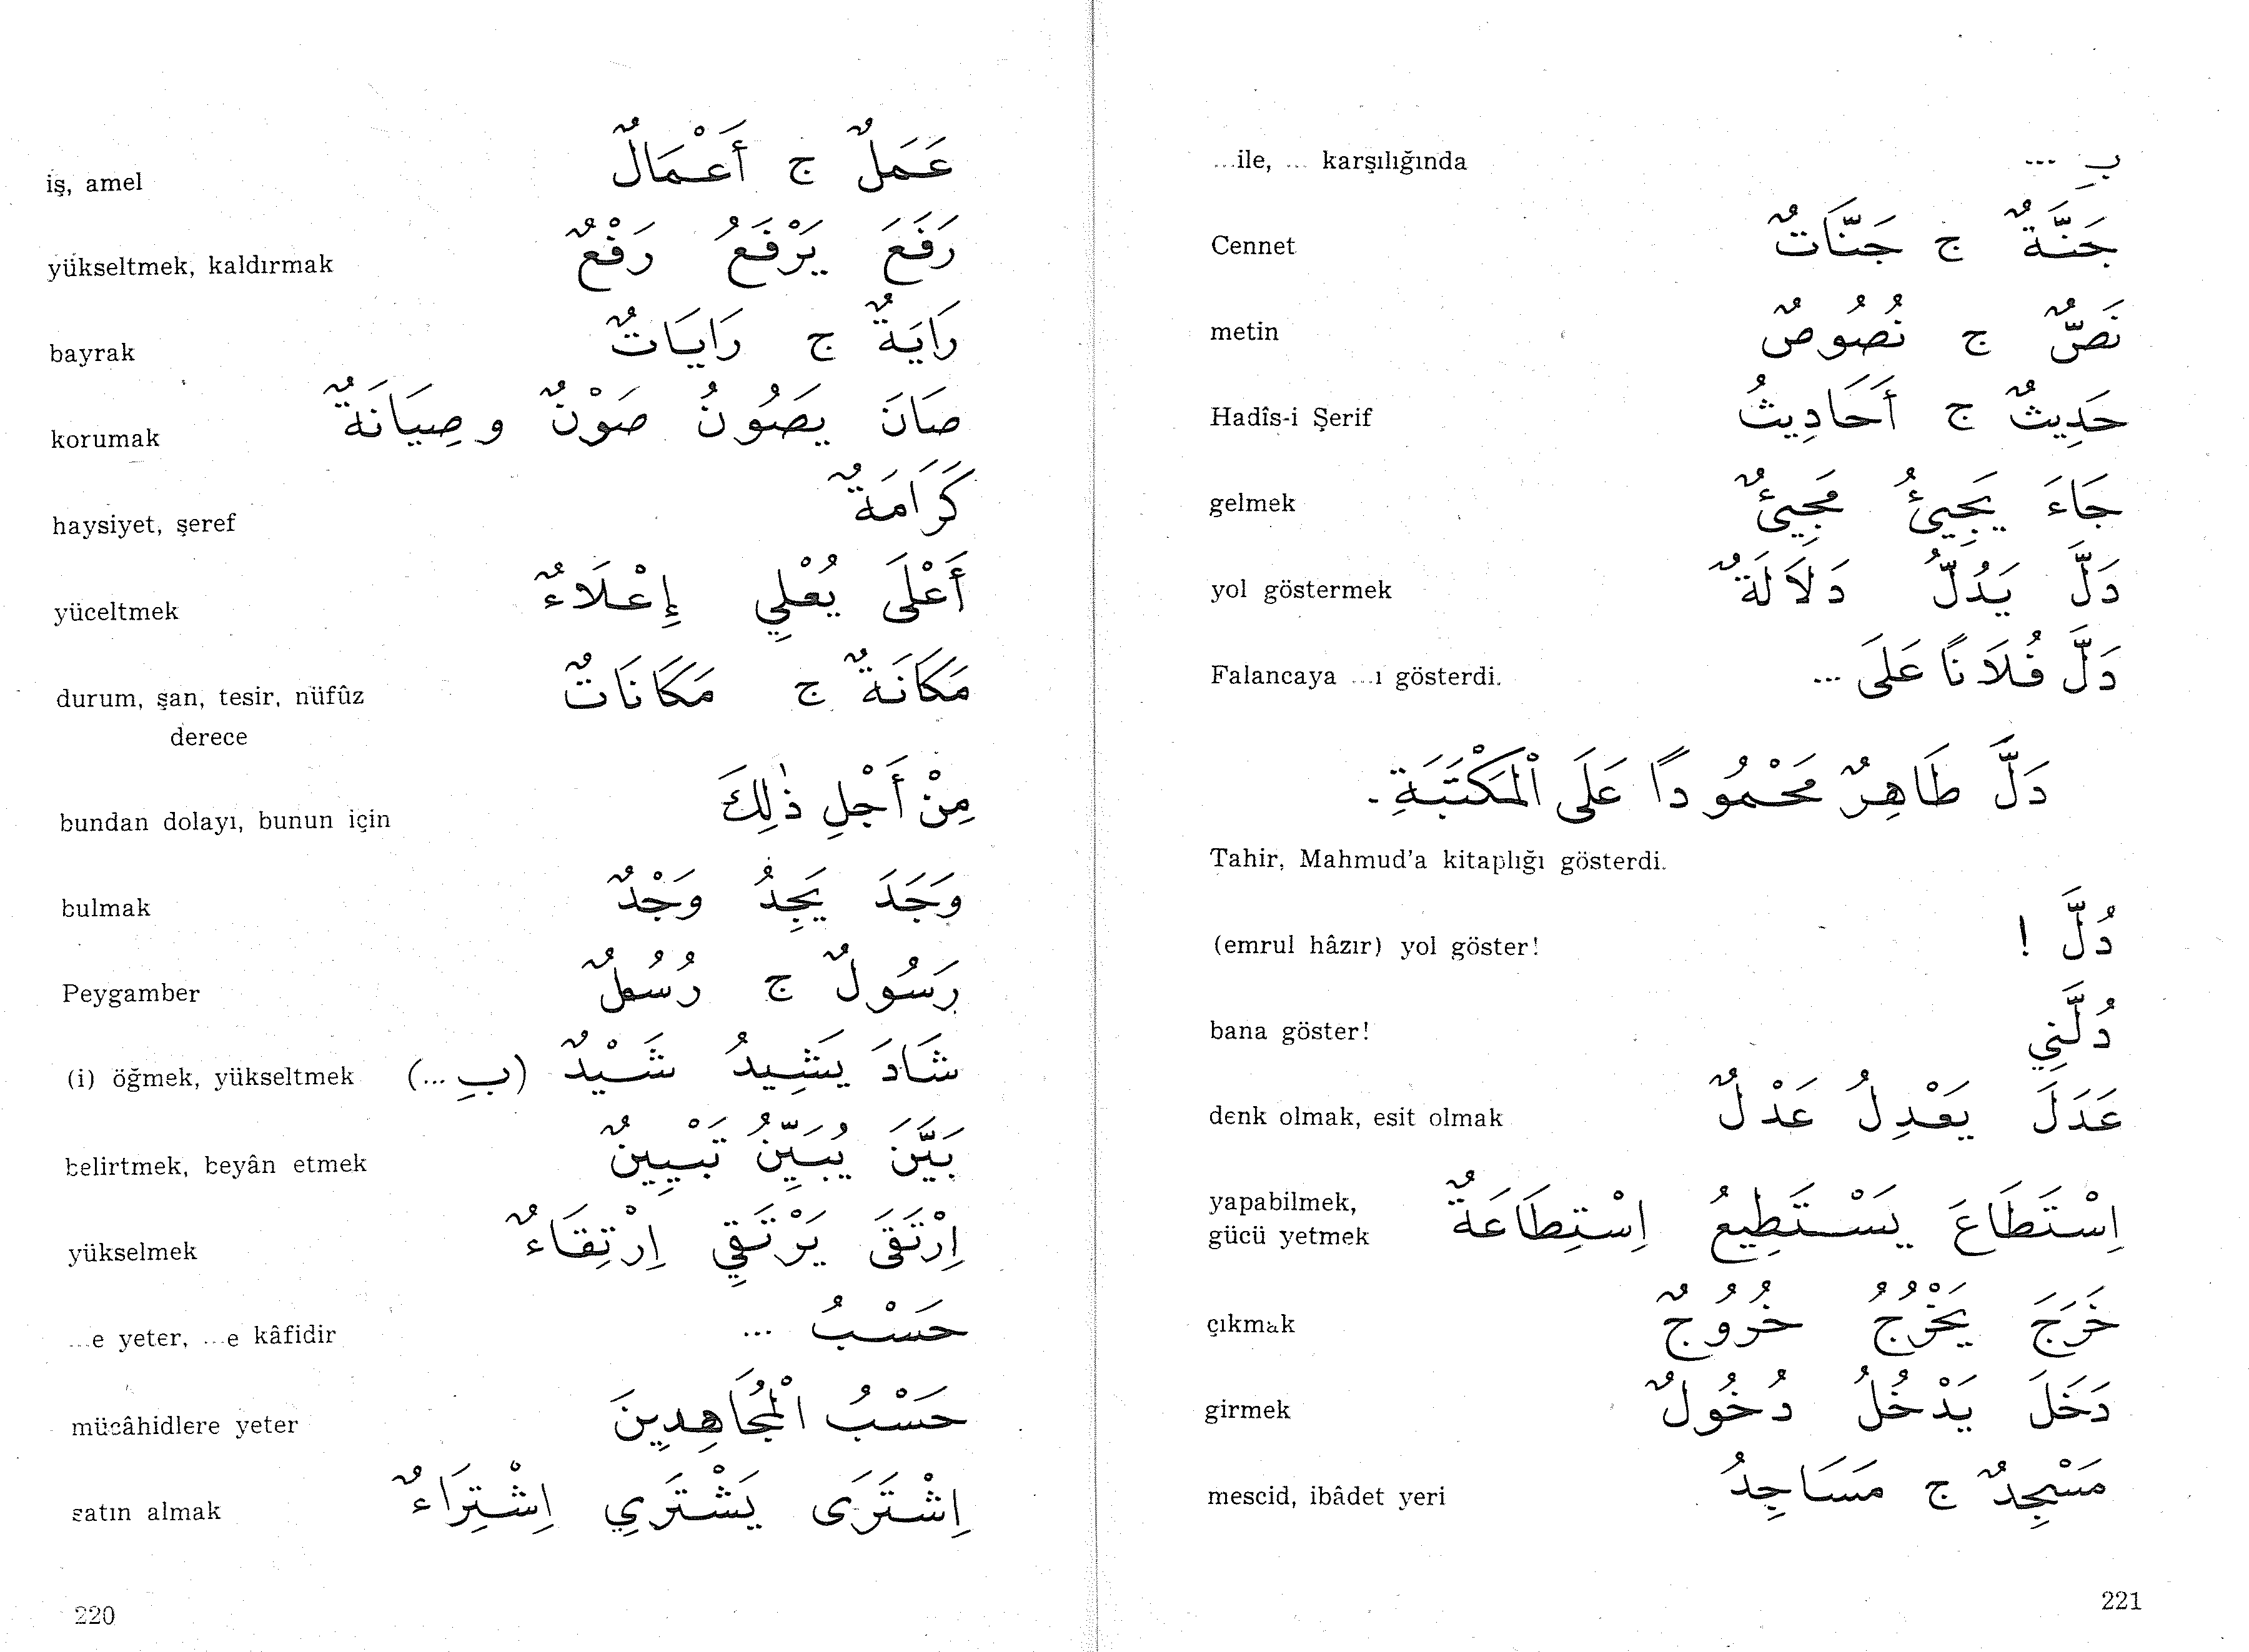 iş, amel عَمَلٌ ج أَعْمَالٌ
yükseltmek, kaldırmak رَفَعَ يَرْفَعُ رَفْعٌ
bayrak رَايَةٌ ج رَايَاتٌ
korumak صَانَ يَصُونُ صَوْنٌ و صِيَانَةٌ
haysiyet, şeref كَرَامَةٌ
yüceltmek أَعْلَى يُعْلِي إِعْلَاءٌ
durum, şan, tesir, nüfûz مَكَانَةٌ ج مَكَانَاتٌ
derece
bundan dolayı, bunun için مِنْ أَجْلِ ذٰلِكَ
bulmak وَجَدَ يَجِدُ وَجْدٌ
Peygamber رَسُولٌ ج رُسُلٌ
(i) öğmek, yükseltmek شَادَ يَشِيدُ شَيْدٌ (بِ ...)
belirtmek, beyân etmek بَيَّنَ يُبَيِّنُ تَبْيِينٌ
yükselmek اِرْتَقَى يَرْتَقِي اِرْتِقَاءٌ
...e yeter, ...e kâfidir حَسْبُ ...
mücâhidlere yeter حَسْبُ الْمُجَاهِدِينَ
satın almak اِشْتَرَى يَشْتَرِي اِشْتِرَاءٌ
220
...ile, ... karşılığında بِ ...
Cennet جَنَّةٌ ج جَنَّاتٌ
metin نَصٌّ ج نُصُوصٌ
Hadîs-i Şerif حَدِيثٌ ج أَحَادِيثُ
gelmek جَاءَ يَجِيئُ مَجِيئٌ
yol göstermek دَلَّ يَدُلُّ دَلَالَةٌ
Falancaya ...ı gösterdi. دَلَّ فُلَانًا عَلَى ...
دَلَّ طَاهِرٌ مَحْمُودًا عَلَى الْمَكْتَبَةِ.
Tahir, Mahmud'a kitaplığı gösterdi.
(emrul hâzır) yol göster! دُلَّ !
bana göster! دُلَّنِي
denk olmak, esit olmak عَدَلَ يَعْدِلُ عَدْلٌ
yapabilmek, اِسْتَطَاعَ يَسْتَطِيعُ اِسْتِطَاعَةٌ
gücü yetmek
çıkmak خَرَجَ يَخْرُجُ خُرُوجٌ
girmek دَخَلَ يَدْخُلُ دُخُولٌ
mescid, ibâdet yeri مَسْجِدٌ ج مَسَاجِدُ
221